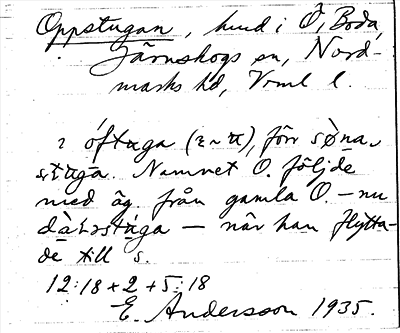 Oppstugan, hmd i Ö, Boda,
Järnskogs sn, Nord-
marks hd, Vrml l.
oftuga förr søna,
stuga. Namnet O. följde
med äg. från gamla O. – nu
– när han flytta-
de till s.
12:18 + 2 + 5:18
E. Andersson 1935.